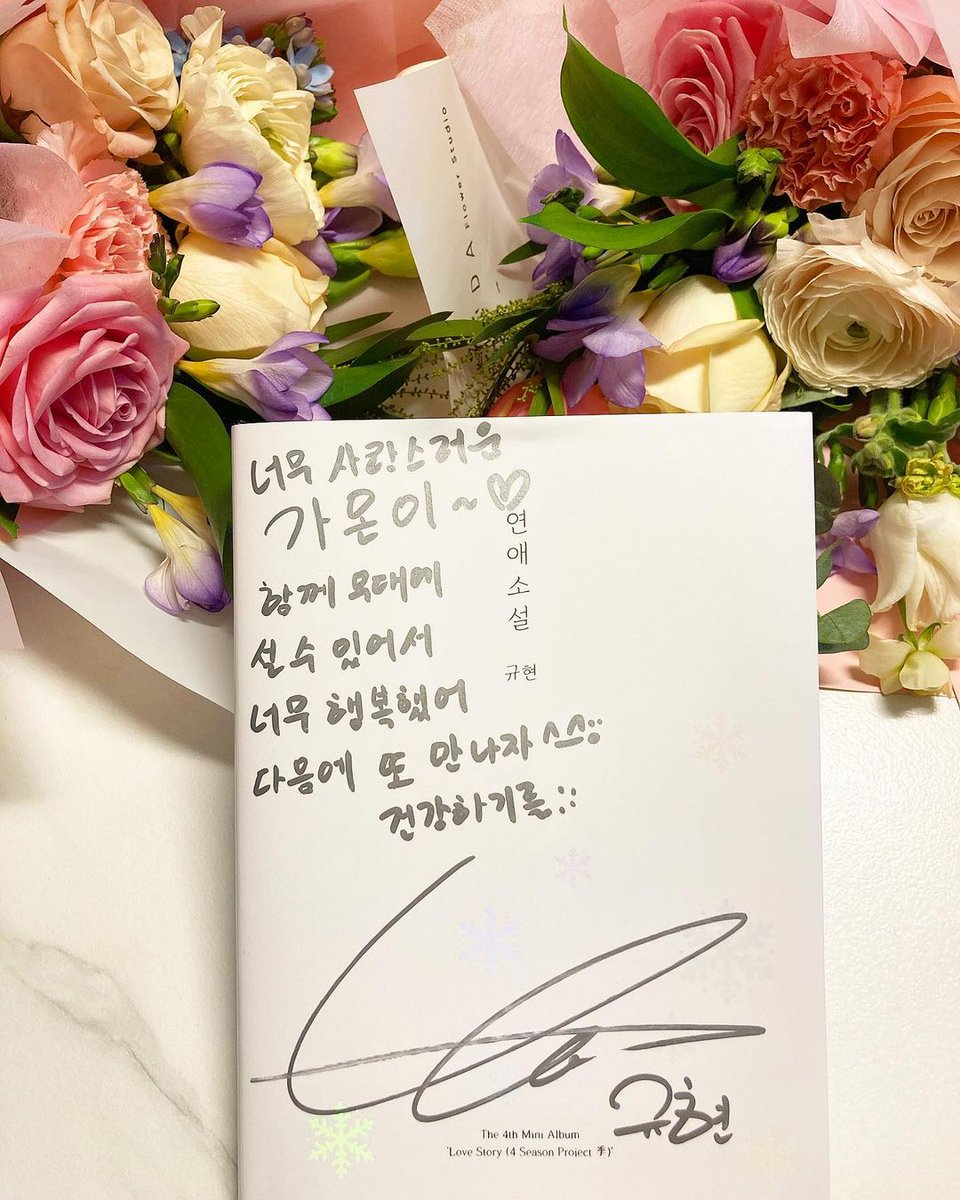 DA Flower studio
너무 사랑스러운
가온이~♡
함께 무대에
설 수 있어서
너무 행복했어
다음에 또 만나자^^
건강하기를::
연애소설 규현
규현
The 4th Mini Album
'Love Story (4 Season Project 季)'